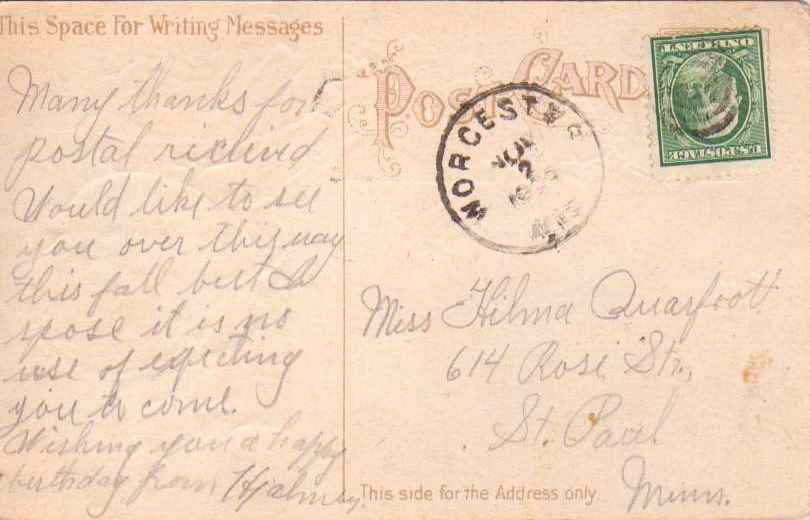 This Space For Writing Messages
Many thanks for
postal recieved
Would like to see
you over this way
this fall but I
spose it is no
use of expecting
you to come.
Wishing you a happy
birthday from Hjalmer.
POST CARD
WORCESTER
NOV
2
Miss Hilma Quarfoot
614 Rose Str.,
St. Paul
Minn.
This side for the Address only
U.S. POSTAGE
ONE CENT